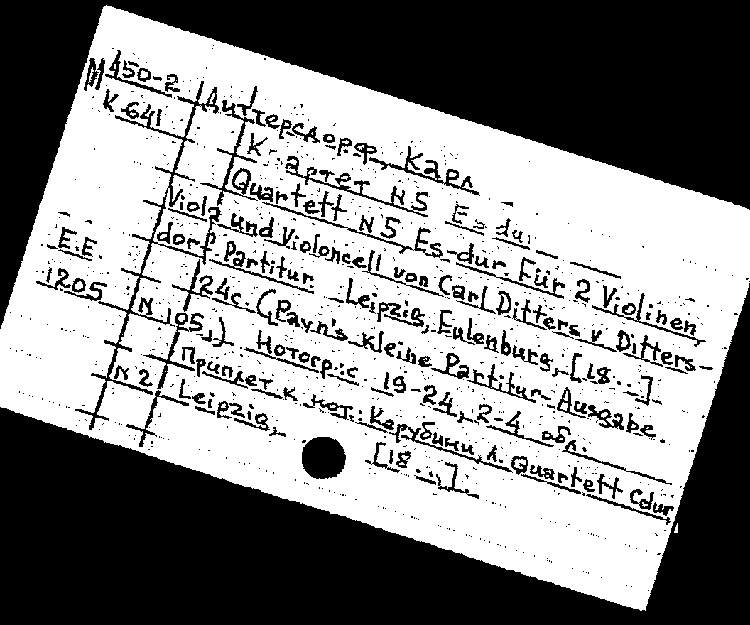 М 450-2
К-641
Диттерсдорф, Карл
Квартет N5 Es dur
Quartett N5, Es-dur. Für 2 Violinen,
Viola und Violoncell von Carl Ditters v. Ditters-
dorf. Partitur. Leipzig, Eulenburg, [18...]
24с. (Payn's kleine Partitur-Ausgabe.
N 105,) Нотогр.: с 19-24, 2-4 обл.
Е.Е.
1205
Приплет к нот.: Керубини, Л. Quartett Cdur
N2 Leipzig, [18...].